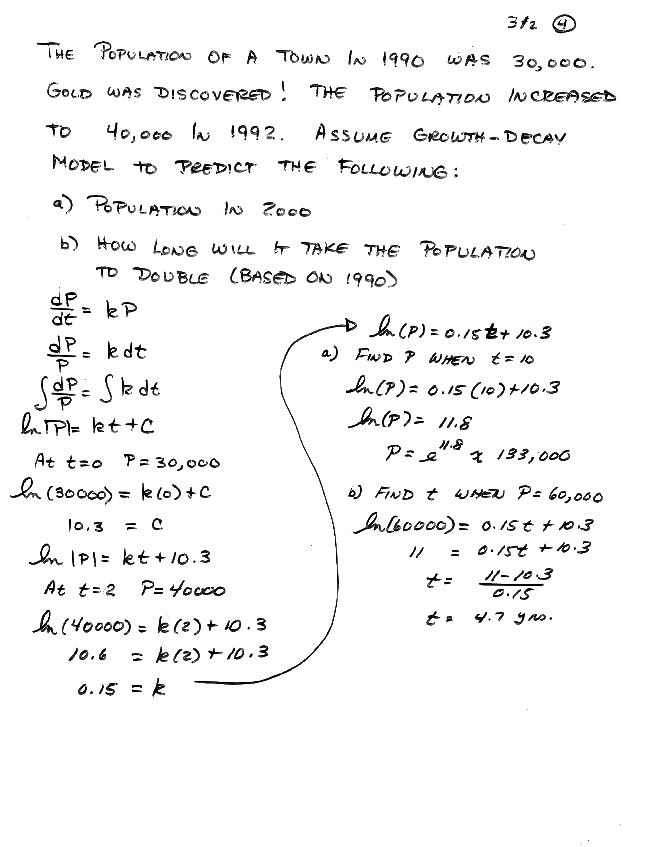 3#2 ④
THE POPULATION OF A TOWN IN 1990 WAS 30,000.
GOLD WAS DISCOVERED! THE POPULATION INCREASED
TO 40,000 IN 1992. ASSUME GROWTH-DECAY
MODEL TO PREDICT THE FOLLOWING:
a) POPULATION IN 2000
b) HOW LONG WILL IT TAKE THE POPULATION
TO DOUBLE (BASED ON 1990)
dP/dt = kP
dP/P = k dt
∫ dP/P = ∫ k dt
ln |P| = kt + C
At t=0 P=30,000
ln (30000) = k(0) + C
10.3 = C
ln |P| = kt + 10.3
At t=2 P=40000
ln (40000) = k(2) + 10.3
10.6 = k(2) + 10.3
0.15 = k
ln(P) = 0.15t + 10.3
a) FIND P WHEN t=10
ln(P) = 0.15 (10) + 10.3
ln(P) = 11.8
P = e^11.8 ≈ 133,000
b) FIND t WHEN P=60,000
ln(60000) = 0.15t + 10.3
11 = 0.15t + 10.3
t = 11-10.3/0.15
t = 4.7 yrs.